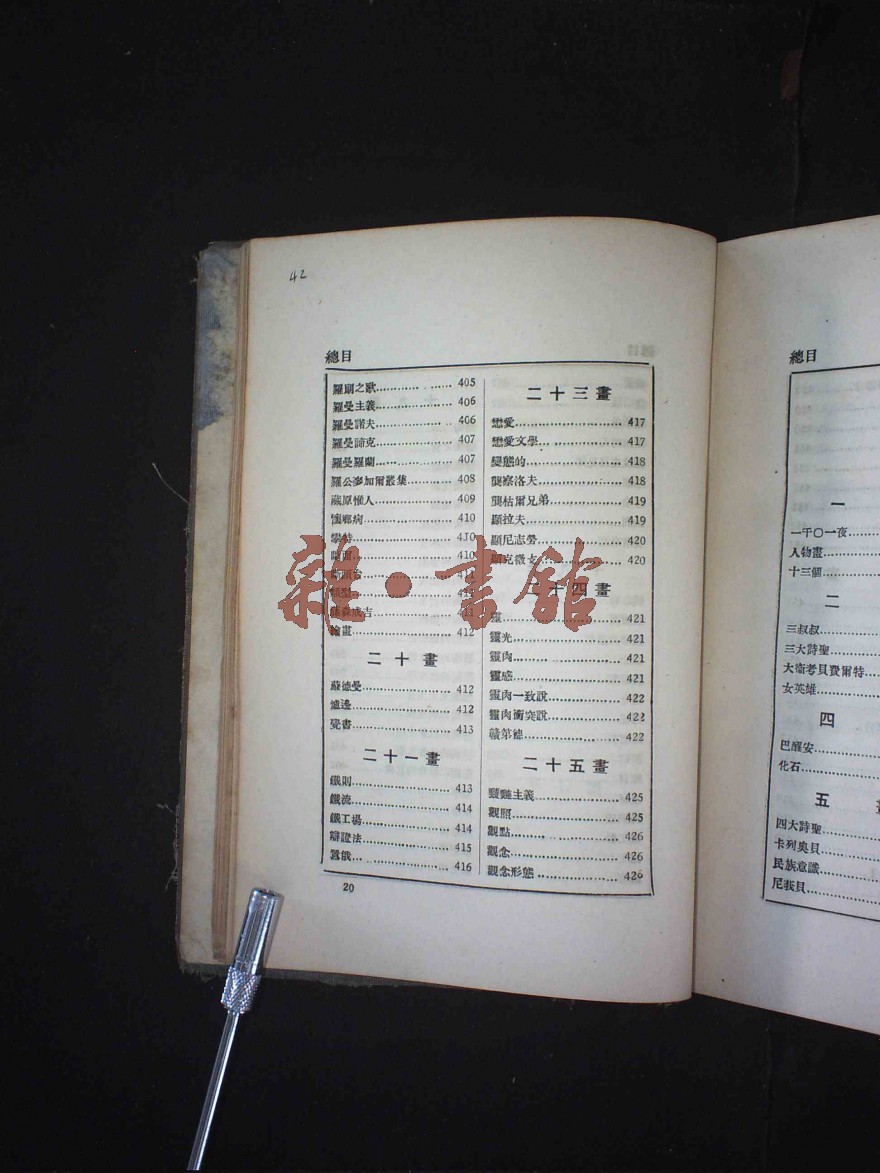 42
總目
羅曼主義 406
羅曼諾夫 406
羅曼諦克 407
羅曼羅蘭 407
羅公麥加爾叢集 408
藏原惟人 409
懷鄉病 410
410
410
411
412
繪畫 412
二十畫
蘇德曼 412
爐邊 412
413
二十一畫
鐵則 413
鐵流 414
鐵工場 414
辯證法 415
416
20
二十三畫
戀愛 417
戀愛文學 417
變態的 418
龔察洛夫 418
龔枯爾兄弟 419
顯拉夫 419
顯尼志勞 420
顯克微支 420
二十四畫
靈 421
靈光 421
靈肉 421
靈感 421
靈肉一致說 422
靈肉衝突說 422
422
二十五畫
主義 425
觀照 425
觀點 426
觀念 426
觀念形態 426
雜·書館
總目
一
一千〇一夜
人物畫
十三個
二
三叔叔
三大詩聖
大衛考貝費爾特
女英雄
四
巴醒安
化石
五 畫
四大詩聖
卡列奧貝
民族意識
尼莪貝